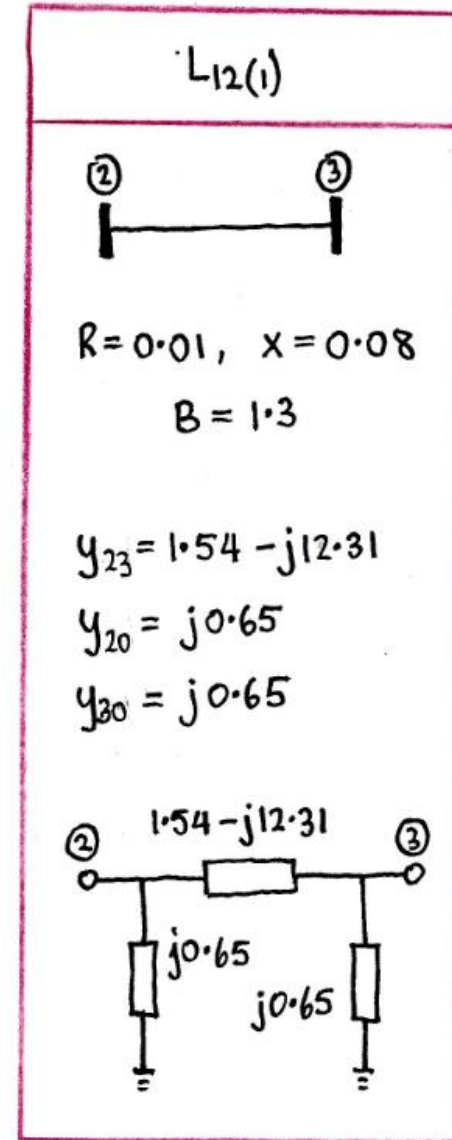 L12(1)
② ③
R=0.01, X=0.08
B=1.3
y23=1.54-j12.31
y20=j0.65
y30=j0.65
1.54-j12.31
② ③
j0.65
j0.65